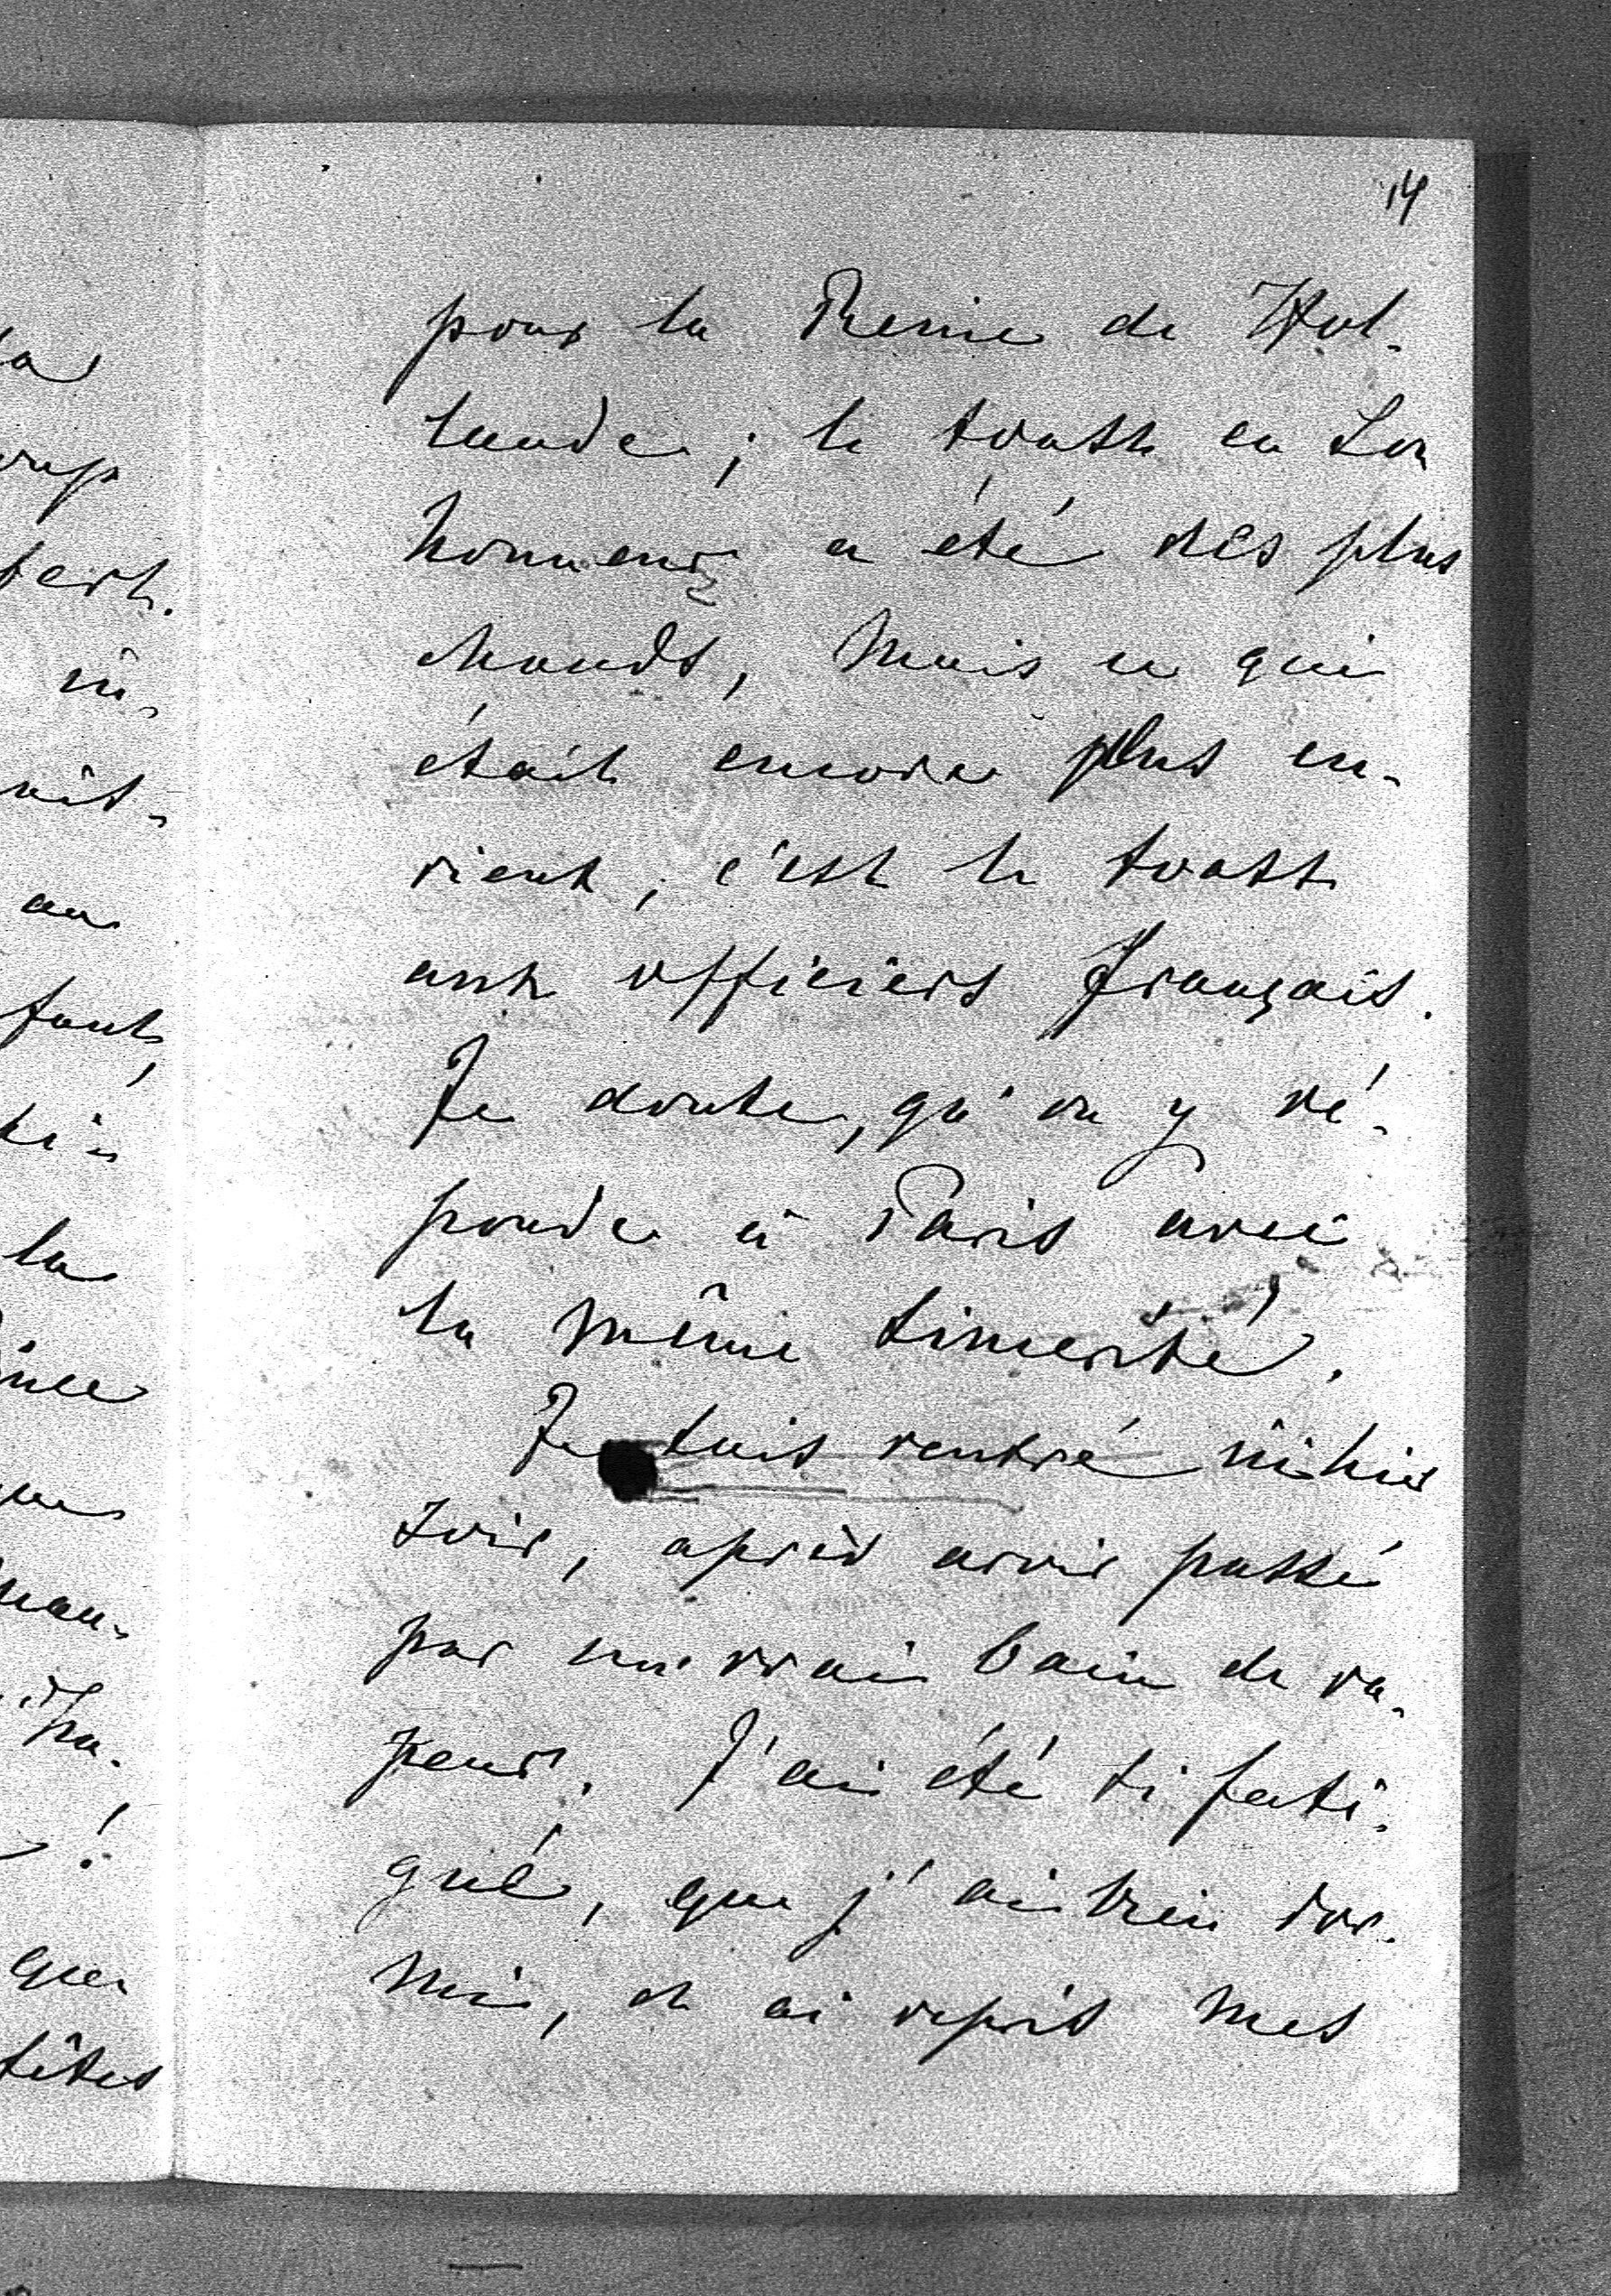 14
pour la Reine de Hol-
lande; le toast en Son
honneur a été des plus
chauds, Mais ce qui
était encore plus cu-
rieux, c'est le toast
aux officiers français.
Je doute, qu'on y ré-
ponde à Paris avec
la même sincérité.
Je suis rentré ici hier
soir, après avoir passé
par un vrai bain de va-
peur. J'ai été si fati-
gué, que j'ai bien dor-
mi, et ai repris mes